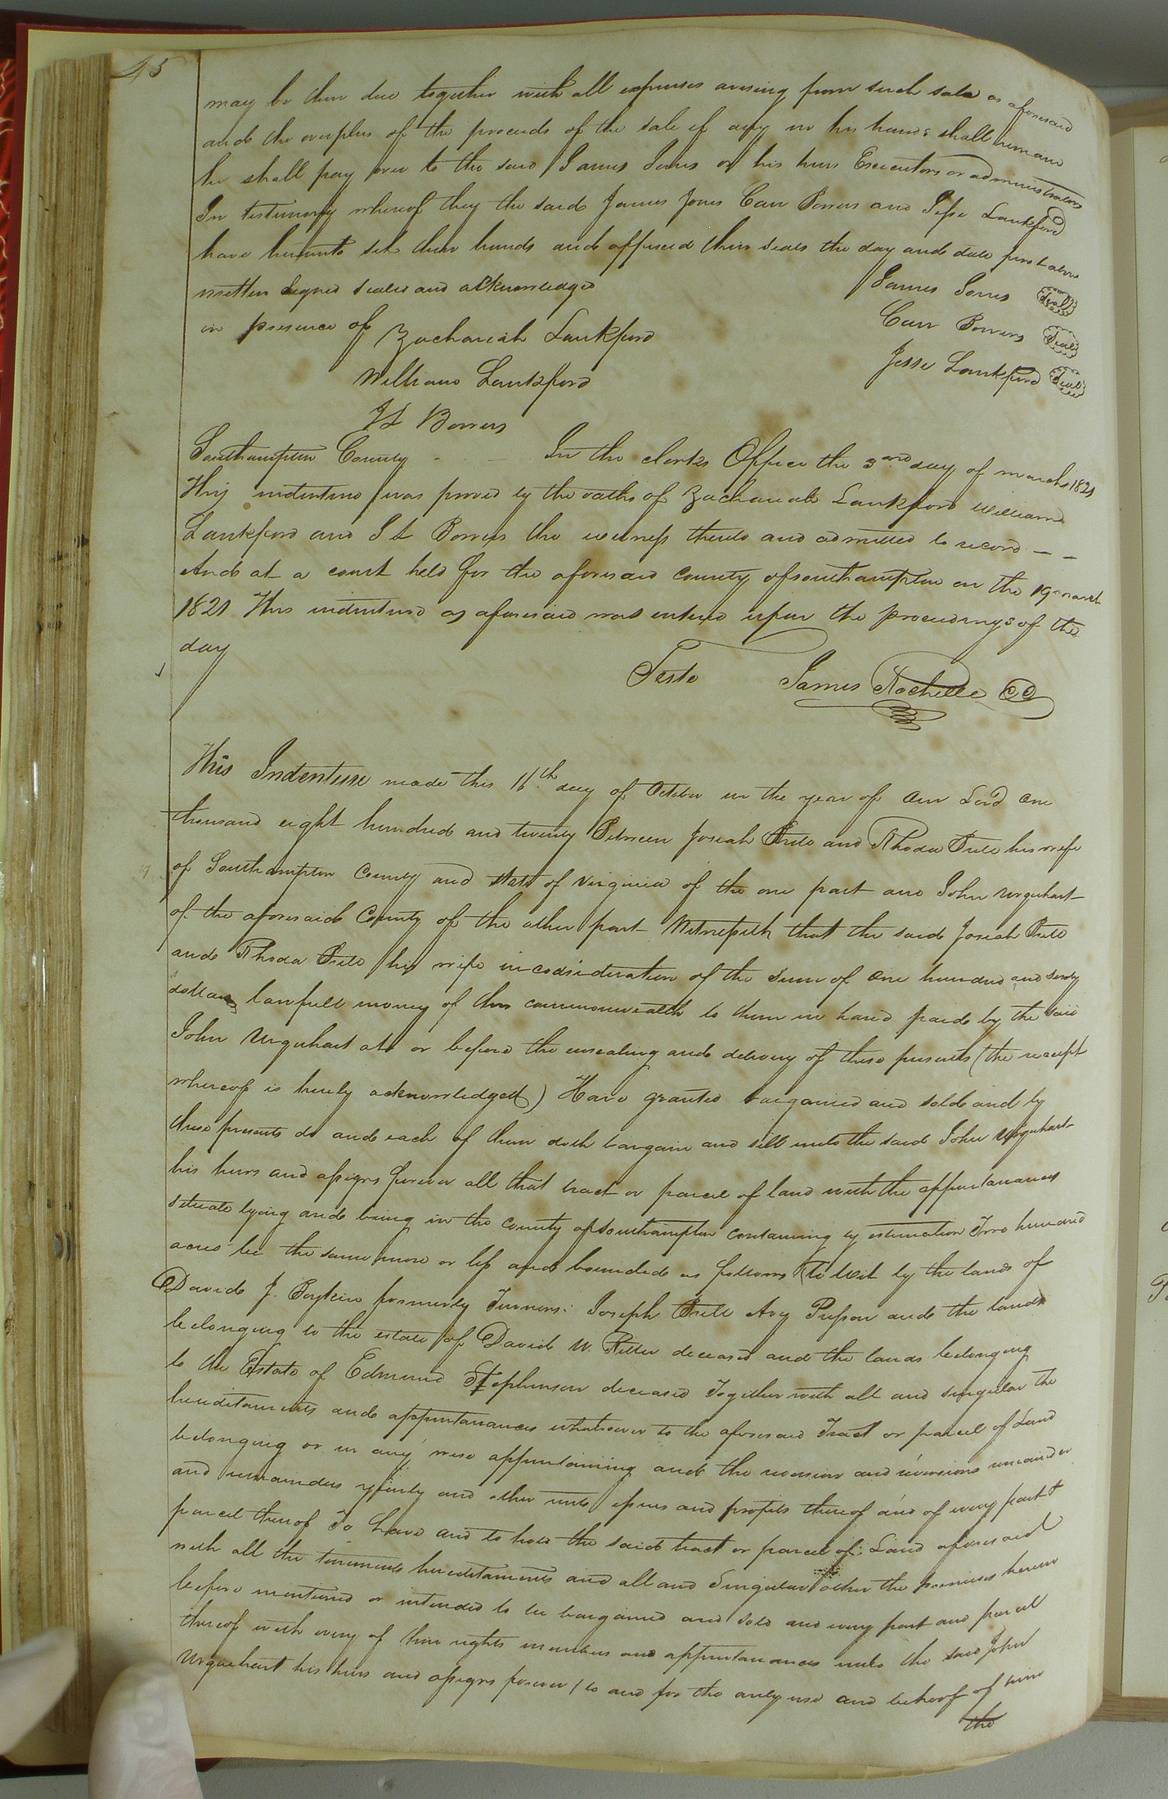 45
may be then due together with all expenses arising from such sale as aforesaid
and the overplus of the proceeds of the sale if any in his hands shall remain
he shall pay over to the said James Jones or his heirs Executors or administrators
In testimony whereof they the said James Jones Carr Bowers and Jesse Lankford
have hereunto set their hands and affixed their seals the day and date first above
written Signed Sealed and acknowledged
in presence of
James Jones Seal
Carr Bowers Seal
Jesse Lankford Seal
Zachariah Lankford
William Lankford
Bowers
Southampton County - In the clerks Office the 3rd day of march 1821
This indenture was proved by the oaths of Zachariah Lankford William
Lankford and Bowers the witness thereto and admitted to record - -
And at a court held for the aforesaid county of southampton on the 19 march
1821 This indenture as aforesaid was entered upon the proceedings of the
day
Teste James Rochelle CC
This Indenture made this 16th day of October in the year of our Lord one
thousand eight hundred and twenty Between Josiah and Rhoda his wife
of Southampton County and State of Virginia of the one part and John Urquhart
of the aforesaid County of the other part Witnesseth that the said Josiah
and Rhoda his wife in consideration of the sum of one hundred and
dollars lawfull money of this commonwealth to them in hand paid by the said
John Urquhart at or before the ensealing and delivery of these presents (the receipt
whereof is hereby acknowledged) Have granted bargained and sold and by
these presents do and each of them doth bargain and sell unto the said John Urquhart
his heirs and assigns forever all that tract or parcel of land with the appurtanances
situate lying and being in the county of Southampton containing by estimation Two hundred
acres be the same more or less and bounded as follows To Wit by the lands of
David J. Boykin formerly Turners: Joseph and the lands
belonging to the estate of David W. deceased and the lands belonging
to the Estate of Edmund Stephenson deceased Together with all and singular the
hereditaments and appurtanances whatsoever to the aforesaid Tract or parcel of Land
belonging or in any wise appurtaining and the reversion and reversions remainder
and remainders and other rents issues and profits thereof and of every part &
parcel thereof To have and to hold the said tract or parcel of Land aforesaid
with all the tenements hereditaments and all and Singular other the premises herein
before mentioned or intended to be bargained and sold and every part and parcel
thereof with every of their rights members and appurtanances unto the said John
Urquhart his heirs and assigns forever / to and for the only use and behoof of him
the